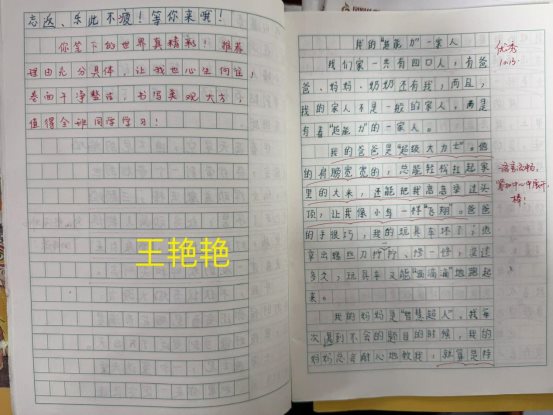 志返、乐此不疲！等你来哦！
你笔下的世界真精彩！推荐
理由充分具体，让我也心生向往，
卷面干净整洁，书写美观大方，
值得全班同学学习！
王艳艳
我的“超能力”一家人
我们家一共有四口人，有爸
爸、妈妈、奶奶还有我，而且，
我的家人不是一般的家人，而是
有着“超能力”的一家人。
我的爸爸是“超级大力士”。他
的肩膀宽宽的，总能轻松扛起家
里的大米，还能把我高高举过头
顶，让我像小鸟一样“飞翔”。爸爸
的手很巧，我的玩具车坏了，他
拿出螺丝刀拧拧、修一修，没过
多久，玩具车又能“嘀嘀嘀”地跑起
来。
我的妈妈是“智慧超人”。我每
次遇到不会的题目的时候，我的
妈妈总会耐心地教我，就算是
优秀
10.15
语言流畅，
紧扣中心展开，
棒！